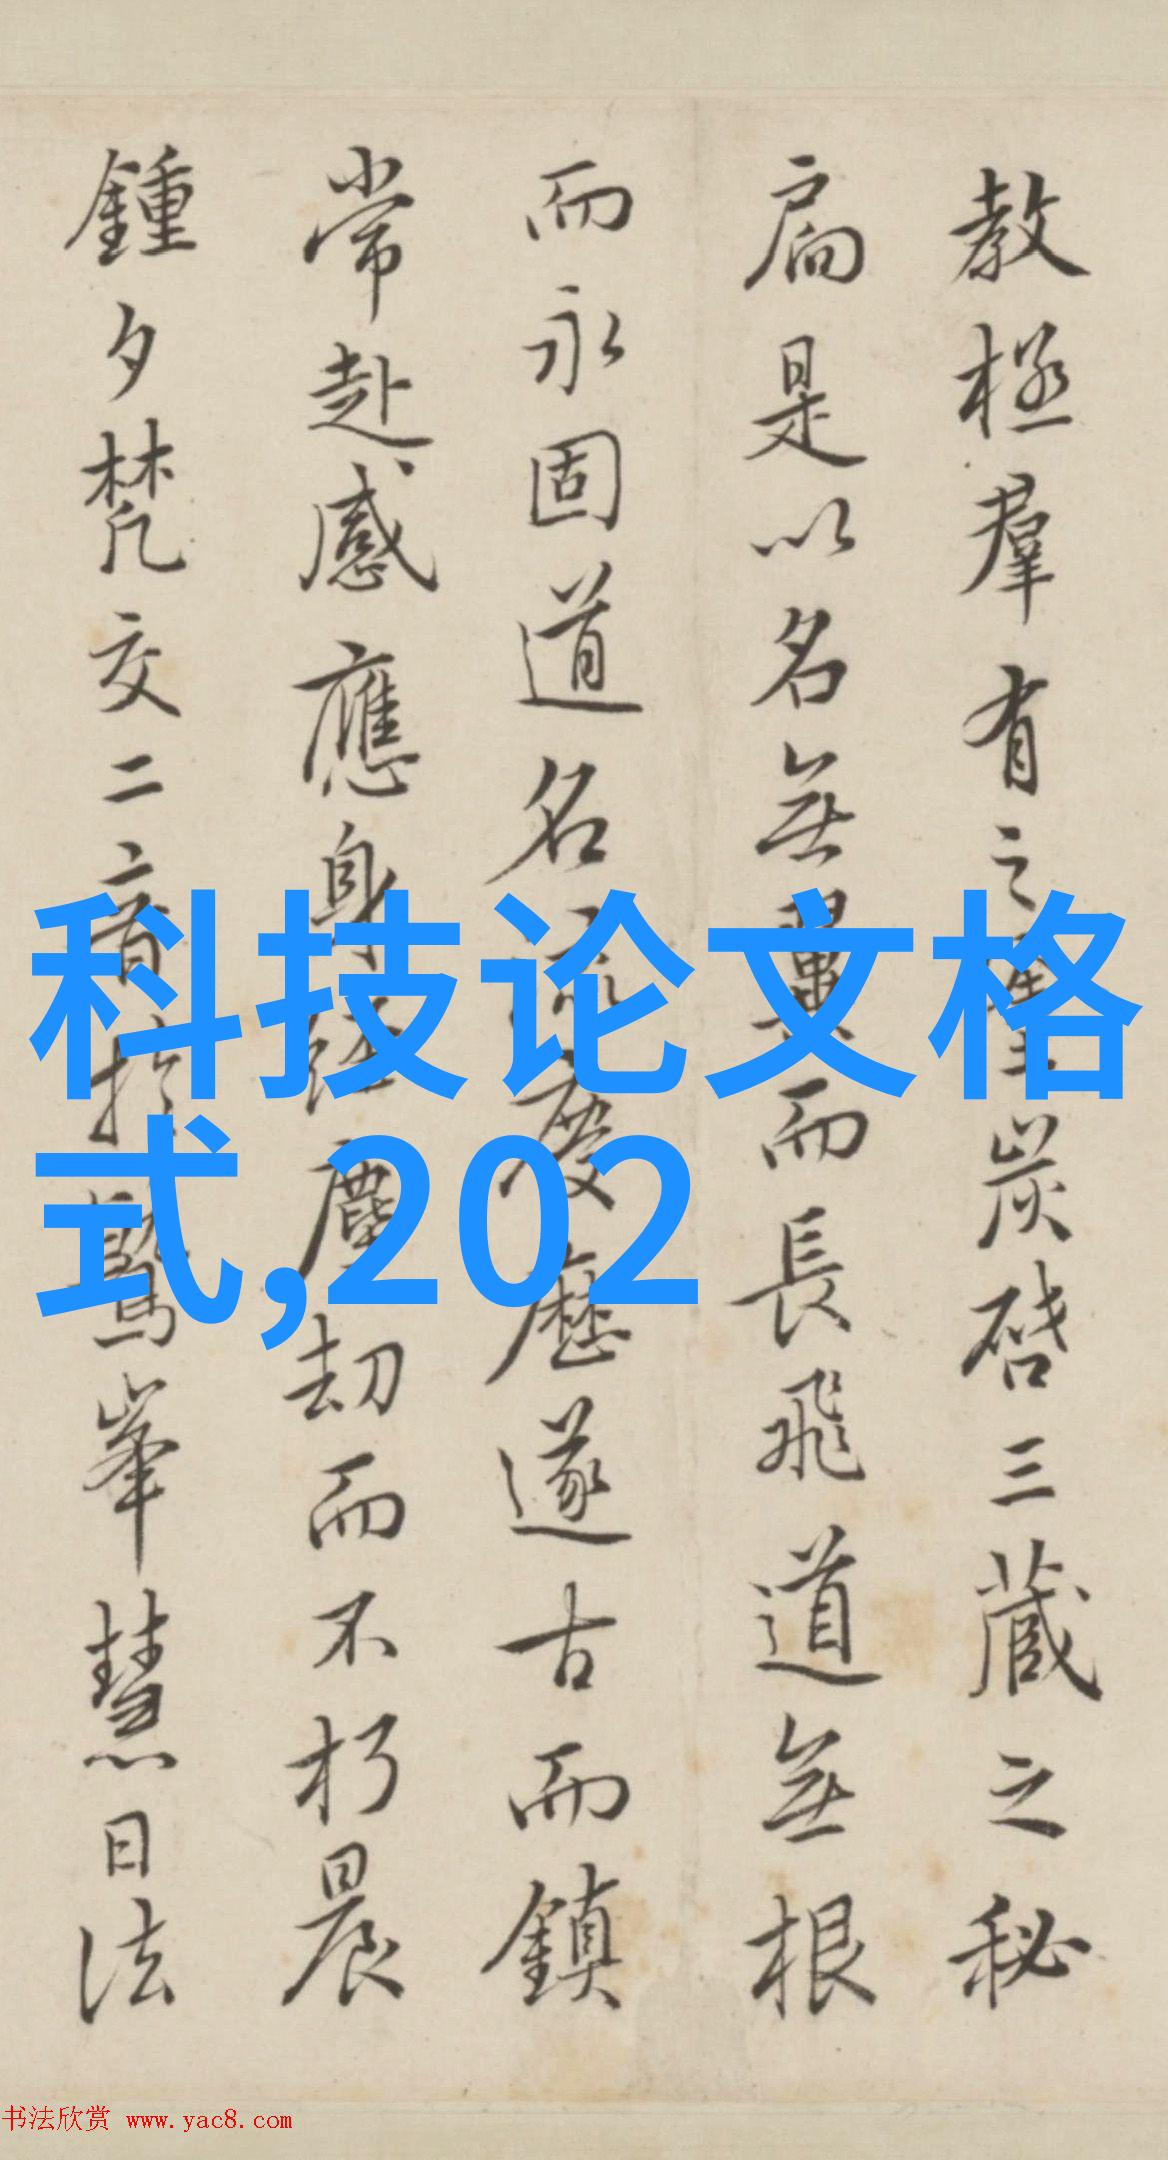 教極羣有之塗炭啓三藏之秘
扃是以名無翼而長飛道無根
而永固道名流慶歷遂古而鎮
常赴感應身經塵劫而不朽晨
鍾夕梵交二音於鷲峯慧日法
科技论文格
式,202
书法欣赏 www.yac8.com